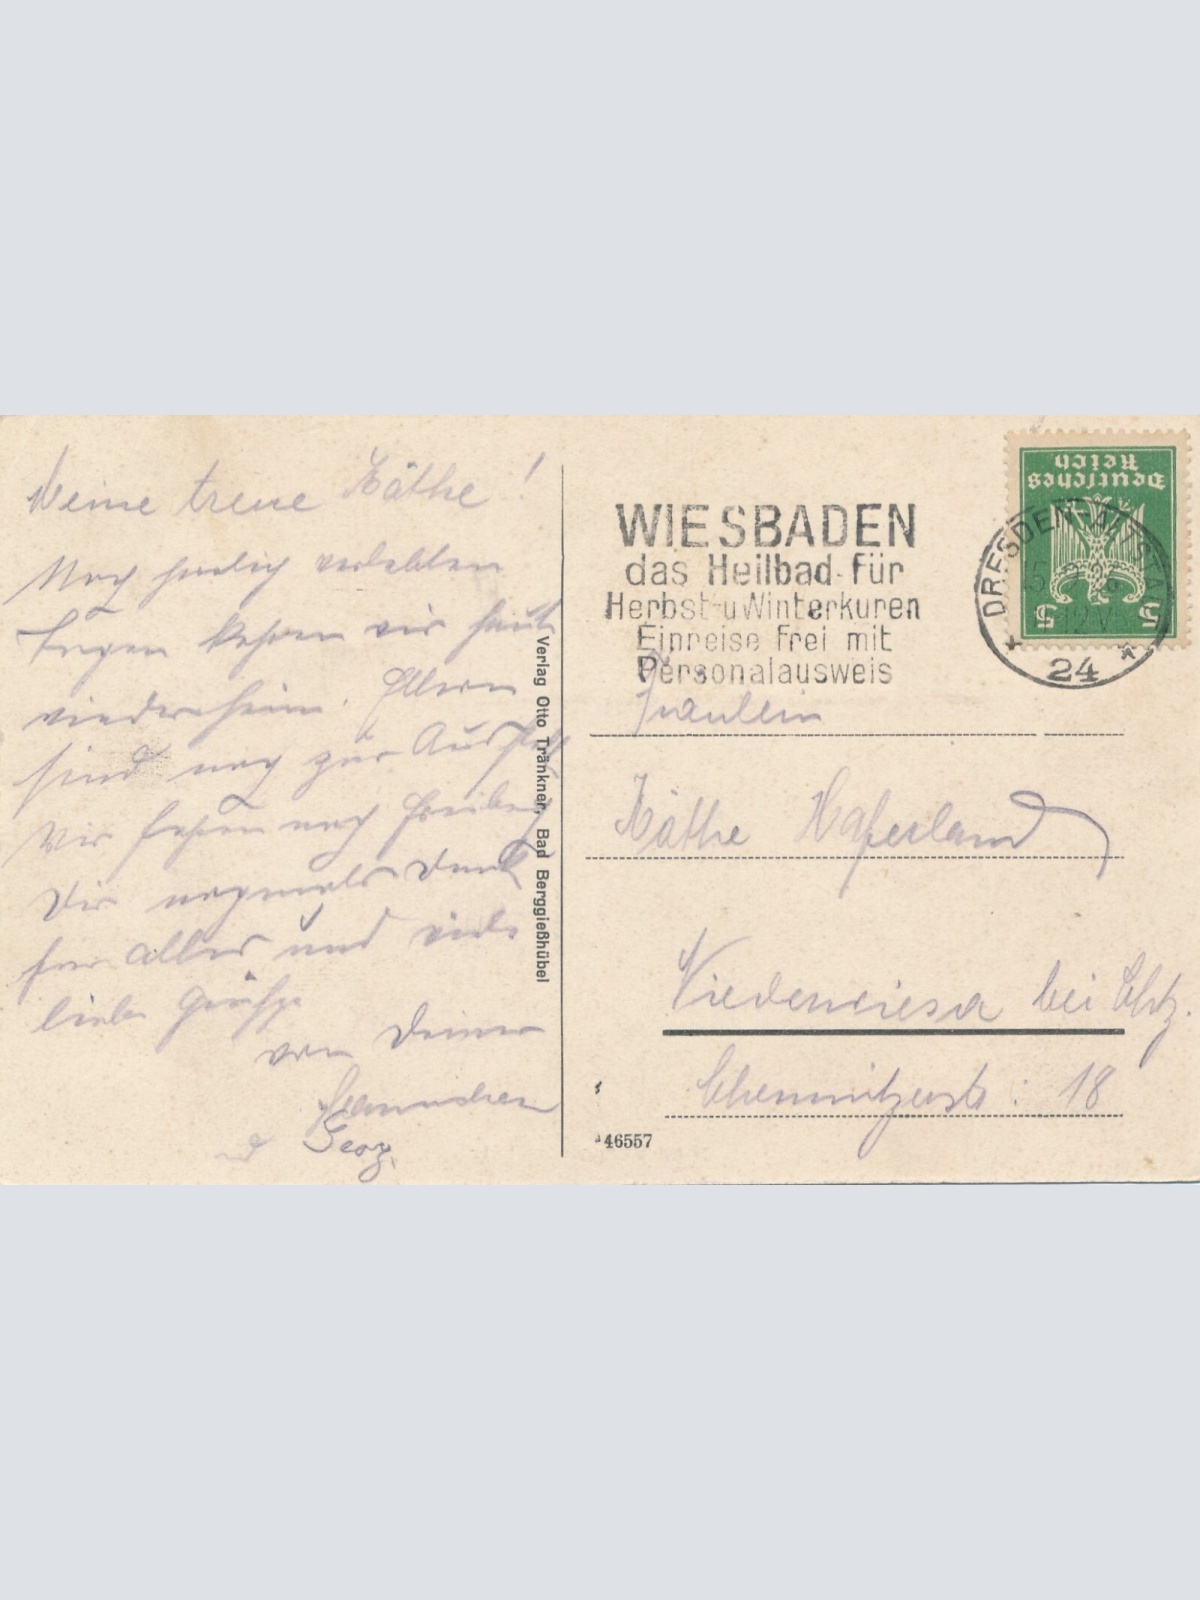 Meine treue Käthe!
Nach herrlich verlebten
Tagen kehren wir heute
wieder heim. Eltern
sind noch zur
Wir fahren nach Freiberg
Dir nochmals Dank
für alles und viele
liebe Grüße
von Deiner
Hannchen
u Georg.
Verlag Otto Tränkner, Bad Berggießhübel
WIESBADEN
das Heilbad für
Herbst-u Winterkuren
Einreise frei mit
Personalausweis
Deutsches
Reich
5 5
DRESDEN-ALTSTADT
24
Fräulein
Käthe Haferland
Niederwiesa bei Chtz.
Chemnitzerstr: 18
46557